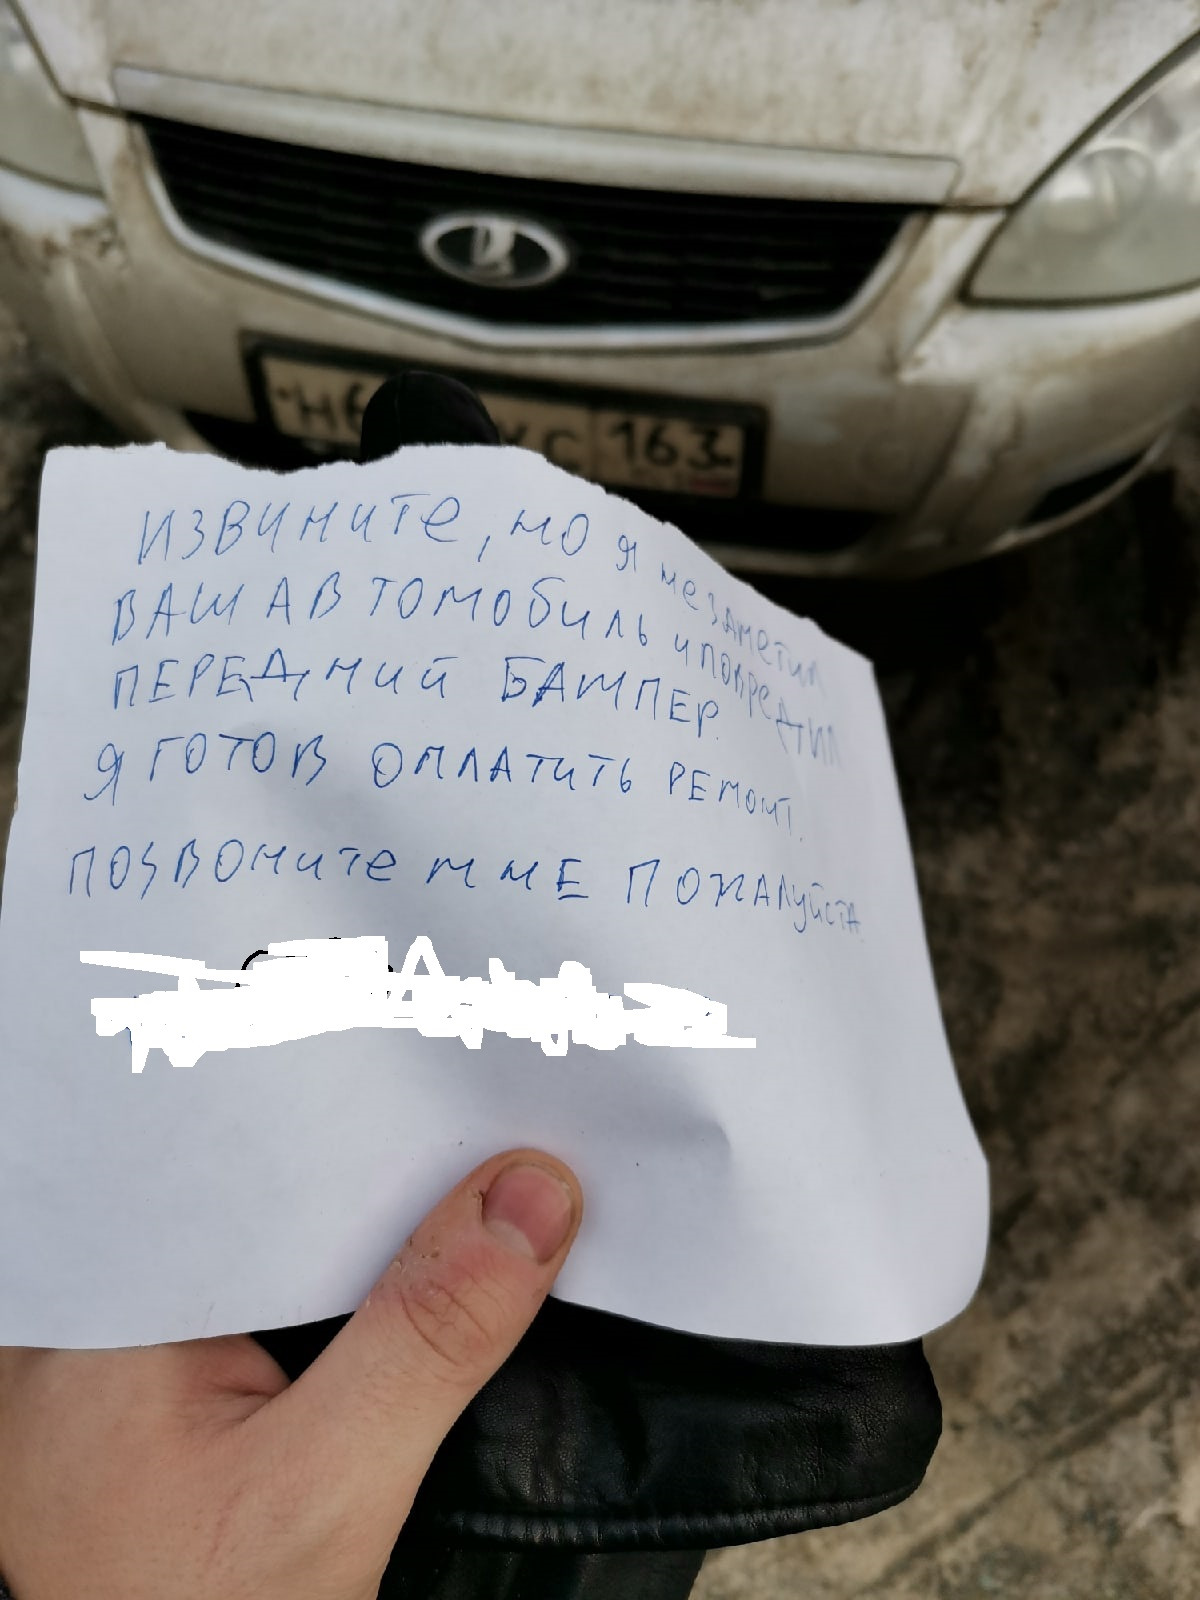 Н6 КС 163
ИЗВИНИТЕ, НО Я НЕЗАМЕТИЛ
ВАШ АВТОМОБИЛЬ И ПОВРЕДИЛ
ПЕРЕДНИЙ БАМПЕР.
Я ГОТОВ ОПЛАТИТЬ РЕМОНТ.
ПОЗВОНИТЕ МНЕ ПОЖАЛУЙСТА.